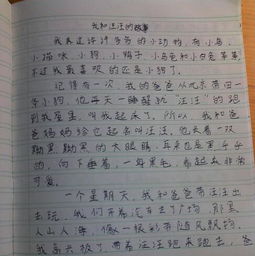 我和汪汪的故事
我养过许许多多的小动物,有小鸟、
小猫咪、小狗、小鸭子、小乌龟和小白兔等等,
不过我最喜欢的还是小狗了。
记得有一次,我的爸爸从北京带回一
条小狗,他每天一睡醒就“汪汪”的跑
到我屋里,叫我起床了。所以,我和爸
爸妈妈给它起名叫汪汪。他长着一双
黝黑黝黑的大眼睛,耳朵也是黑
的,向下垂着,一身黑毛,看起来非常
可爱。
一个星期天,我和爸爸带汪汪出
去玩,我们开着汽车去了广场,那里
人山人海,像一根彩带随风飘扬。
我高兴极了,带着汪汪跑来跑去,爸